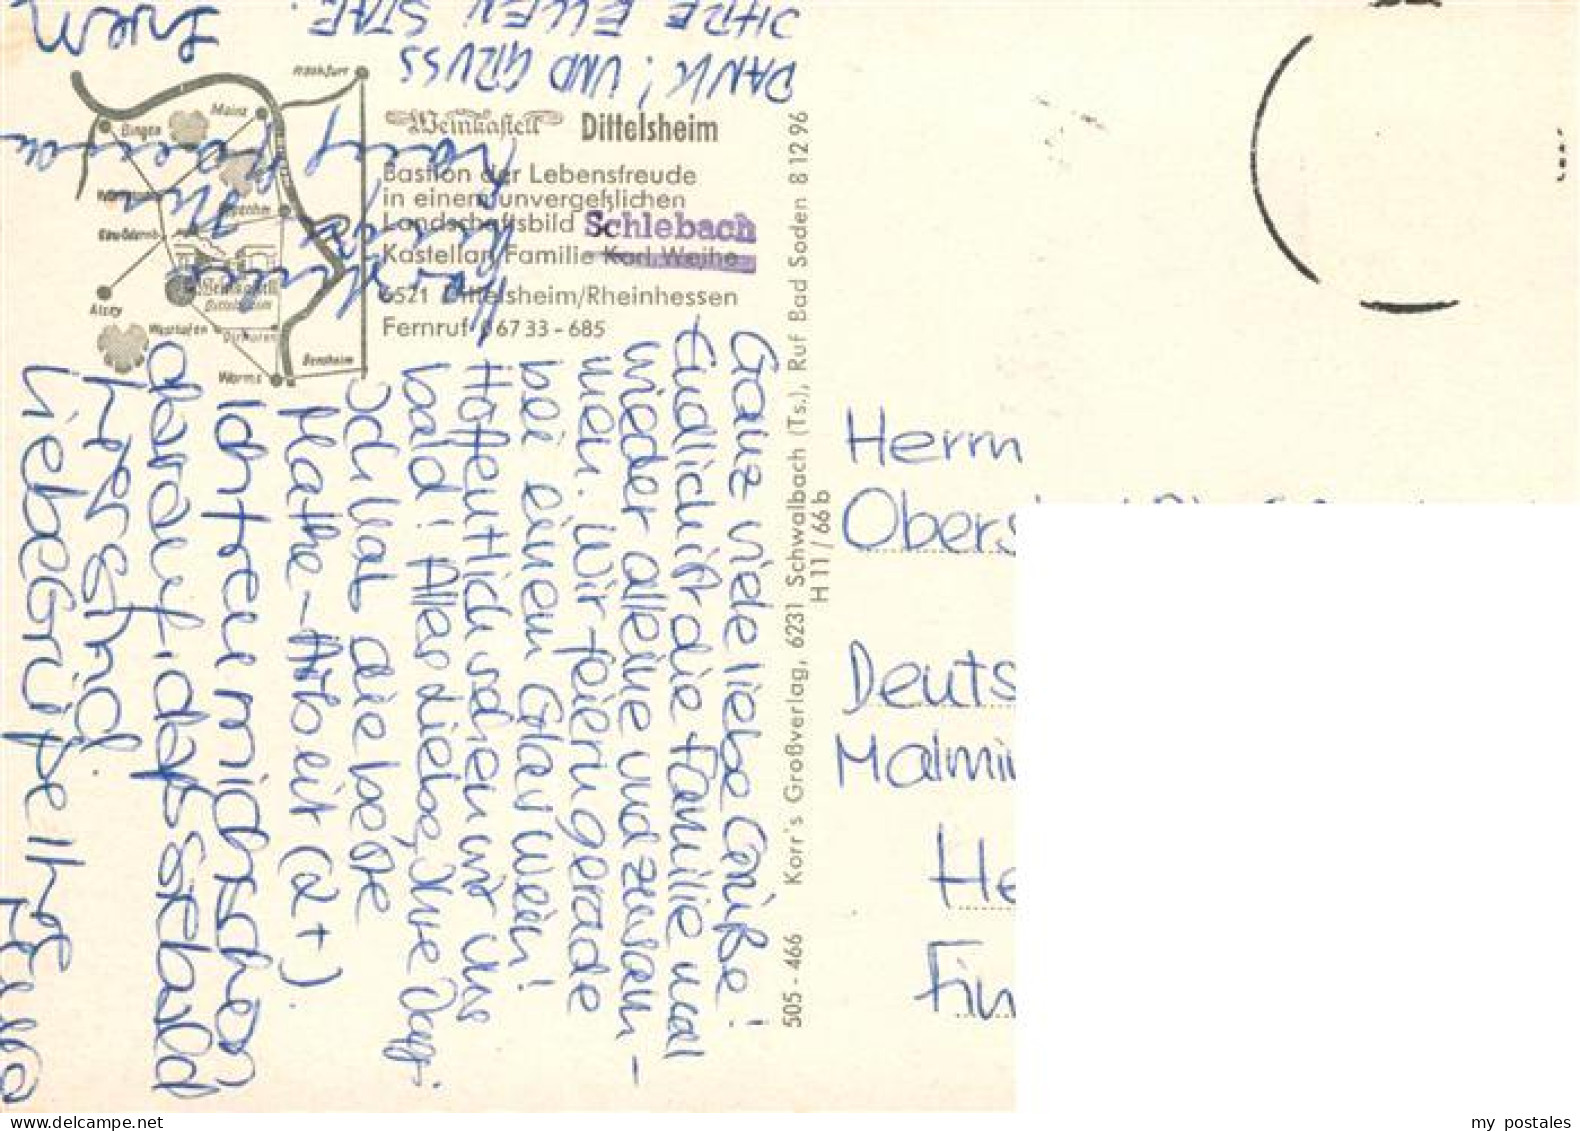 Weinkastell Dittelsheim
Bastion der Lebensfreude
in einem unvergeßlichen
Landschaftsbild Schlebach
Kastellan Familie Karl Weihe
6521 Dittelsheim/Rheinhessen
Fernruf 06733-685
Frankfurt
Mainz
Bingen
Alzey
Westhofen
Worms
Bensheim
Weinkastell
Dittelsheim
Korr's Großverlag, 6231 Schwalbach (Ts.), Ruf Bad Soden 8 12 96
505 - 466
H 11/66 b
Ganz viele liebe Grüße!
Endlich ist die Familie mal
wieder alleine und zusam-
men. Wir feiern gerade
bei einem Glas Wein!
Hoffentlich sehen wir uns
bald! Alles Liebe, Ihre
Ich hab die beste
Mathe-Arbeit (2+).
Ich freu mich schon
darauf, daß Sie bald
hier sind.
Liebe Grüße Ihre
DANK! UND GRUSS
IHRE ELLEN
Sven
Herrn
Obers
Deuts
Malmi
He
Fin
my postales